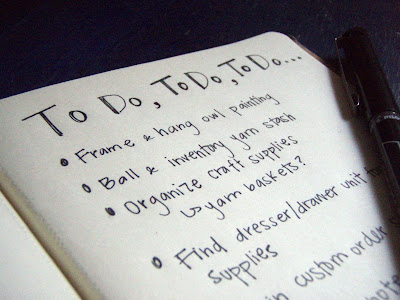 To Do, To Do, To Do...
• Frame & hang owl painting
• Ball & inventory yarn stash
• Organize craft supplies
↳ yarn baskets?
• Find dresser/drawer unit to
supplies
custom order